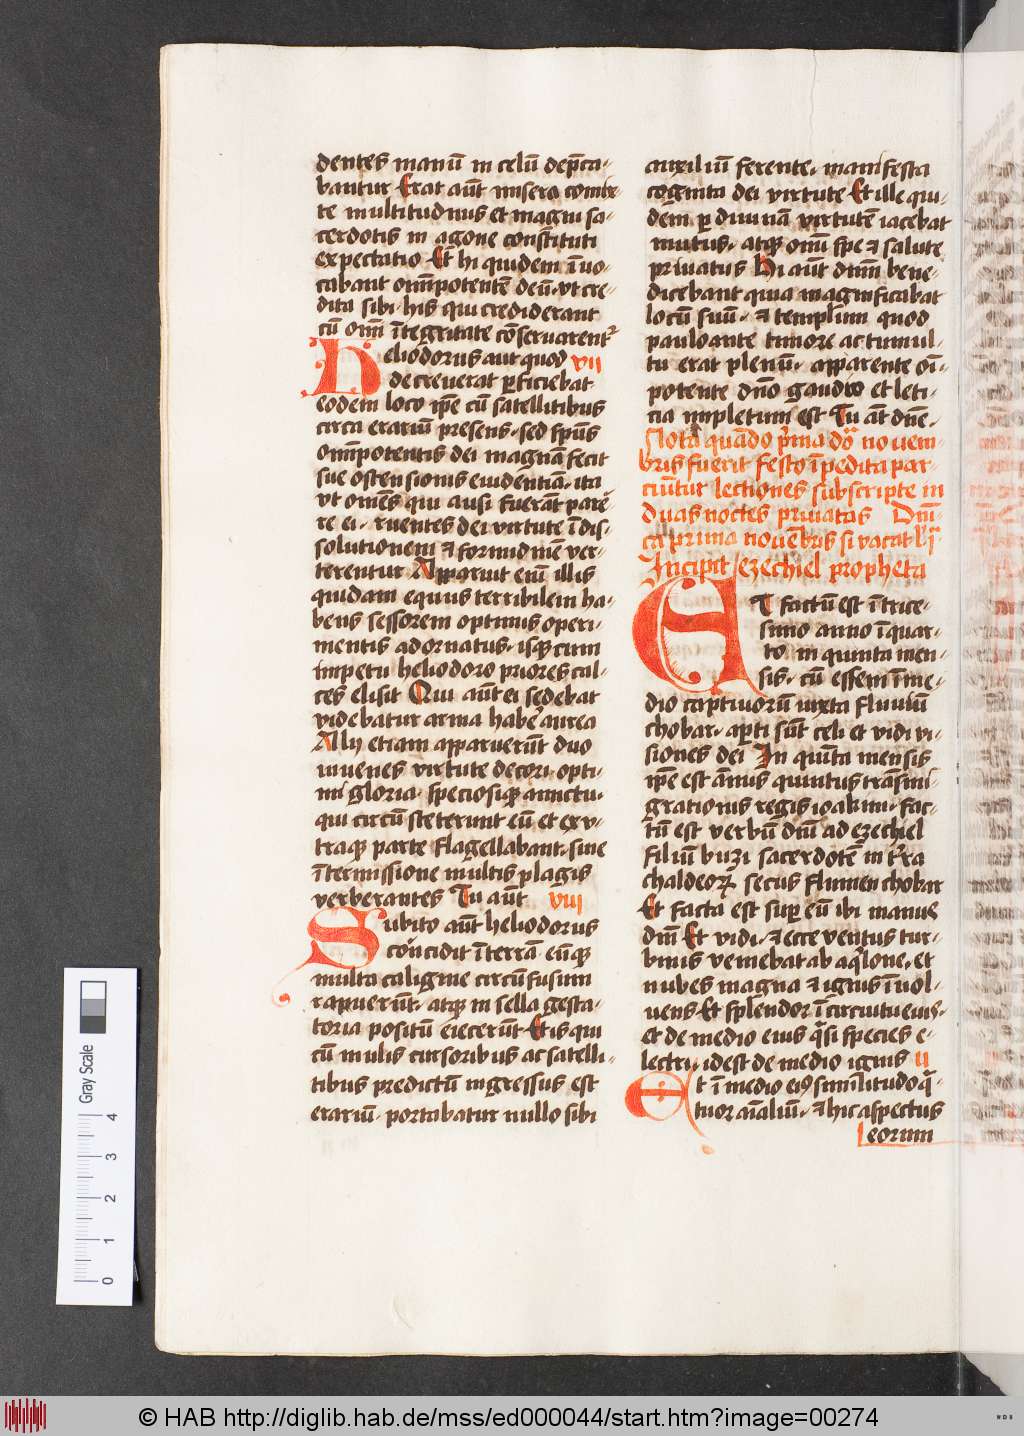 dentes manū in celū dep̄ca-
bantur Erat aūt misera comix-
te multitudinis et magni sa-
cerdotis in agone constituti
expectatio Et hi quidem īuo-
cabant om̄ipotentē deū. vt cre-
dita sibi. his qui crediderant
cū om̄i ītegritate cōseruarent᷑
Heliodorus aut quod vii
decreuerat ꝑficiebat
eodem loco ip̄e cū satellitibus
circa erariū presens. sed sp̄us
om̄ipotentis dei magnā fecit
sue ostensionis euidentiā. ita
vt om̄es qui ausi fuerāt pare-
re ei. ruentes dei virtute ī dis-
solutionem ⁊ formidinē ver-
terentur Apparuit eni᷑ illis
quidam equus terribilem ha-
bens sessorem optimis operi-
mentis adornatus. isqꝫ cum
impetu heliodoro priores cal-
ces elisit Qui aūt ei sedebat
videbatur arma habe᷑ aurea
Alij etiam apparuerūt duo
iuuenes virtute decori. opti-
mi gloria. speciosiqꝫ amictu.
qui circū steterunt eū. et ex v-
traqꝫ parte flagellabant. sine
ītermissione multis plagis
verberantes Tu aūt viii
Subito aūt heliodorus
concidit ī terrā. eūqꝫ
multa caligine circūfusum
rapuerūt. atqꝫ in sella gesta-
toria positū eiecerūt Et is qui
cū multis cursoribus ac satelli-
tibus predictū ingressus est
erariū. portabatur nullo sibi
auxiliū ferente. manifesta
cognita dei virtute Et ille qui-
dēm ꝑ diuinā virtutē iacebat
mutus. atqꝫ omi᷑ spe ⁊ salute
priuatus Hi aūt dn̄m bene-
dicebant quia magnificabat
locū suū. ⁊ templum quod
pauloante timore ac tumul-
tu erat plenū. apparente oī-
potente dn̄o gaudio et leti-
cia impletum est Tu āt dn̄e.
Nota quādo p᷑ma do᷑ nouem-
bris fuerit festo īpedita par-
ciūtur lectiones subscripte in
duas noctes priuatas Dn̄i-
ca prima nouēbris si vacat
Incipit ezechiel propheta
ET factū est ī trice-
simo anno ī quar-
to in quinta men-
sis. cū essem ī me-
dio captiuorū iuxta fluuiū
chobar. aꝑti sūt celi et vidi vi-
siones dei In quīta mensis
ip̄e est ānus quintus trāsmi-
grationis regis ioakim. fac-
tū est verbū dn̄i ad ezechiel
filiū buzi sacerdotē in t᷑ra
chaldeoꝝ secus flumen chobar
Et facta est suꝑ eū ibi manus
dn̄i Et vidi. ⁊ ecce ventus tur-
binis veniebat ab aq᷑lone. et
nubes magna ⁊ ignis īuol-
uens Et splendor ī circuitu eius.
et de medio eius q᷑si species e-
lectri. idest de medio ignis ii
Et ī medio eiꝰ similitudo q᷑-
tuor aīaliū. ⁊ hic aspectus
eorum
Gray Scale
0 1 2 3 4
© HAB http://diglib.hab.de/mss/ed000044/start.htm?image=00274